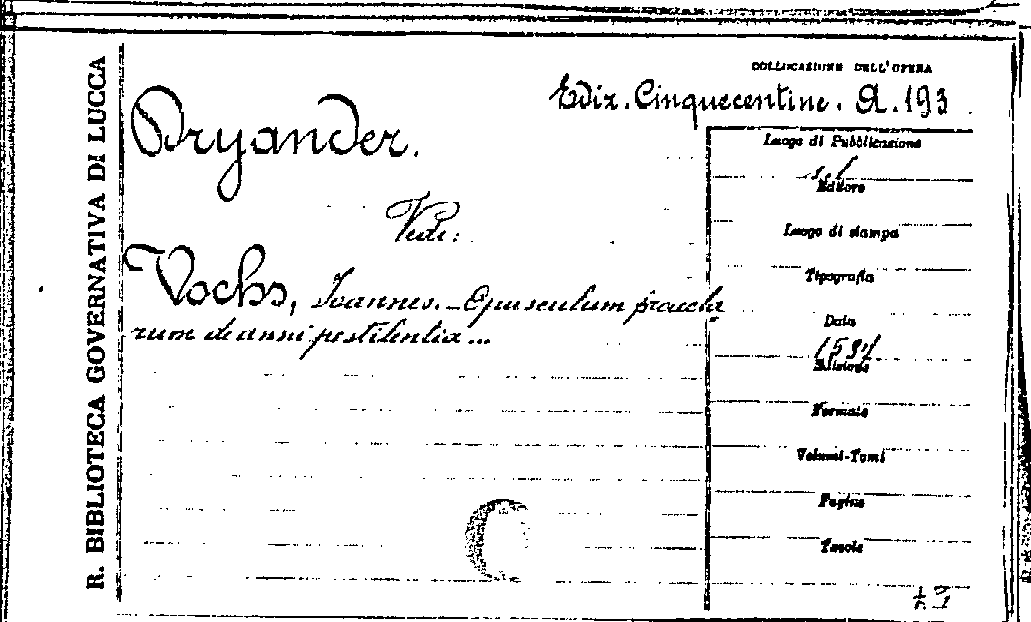 R. BIBLIOTECA GOVERNATIVA DI LUCCA
COLLOCAZIONE DELL'OPERA
Ediz. Cinquecentine. A. 193
Dryander.
Vedi:
Vochs, Joannes. - Opusculum praecla
rum de anni pestilentia...
Luogo di Pubblicazione
Editore
Luogo di stampa
Tipografia
Data
1537
Edizione
Formato
Volumi-Tomi
Pagine
Tavole